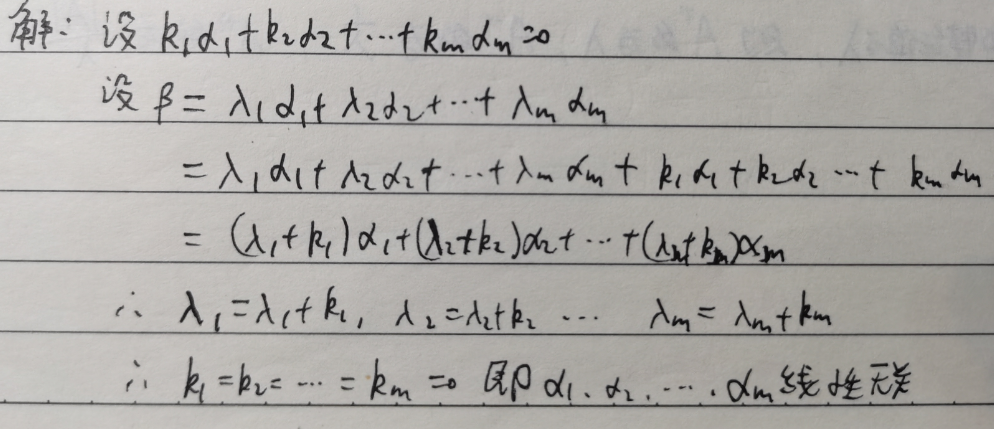 解: 设 k₁α₁+k₂α₂+⋯+kₘαₘ=0
设 β = λ₁α₁+λ₂α₂+⋯+λₘαₘ
= λ₁α₁+λ₂α₂+⋯+λₘαₘ+k₁α₁+k₂α₂⋯+kₘαₘ
= (λ₁+k₁)α₁+(λ₂+k₂)α₂+⋯+(λₘ+kₘ)αₘ
∴ λ₁=λ₁+k₁, λ₂=λ₂+k₂ ⋯ λₘ=λₘ+kₘ
∴ k₁=k₂=⋯=kₘ=0 即 α₁、α₂、⋯、αₘ线性无关